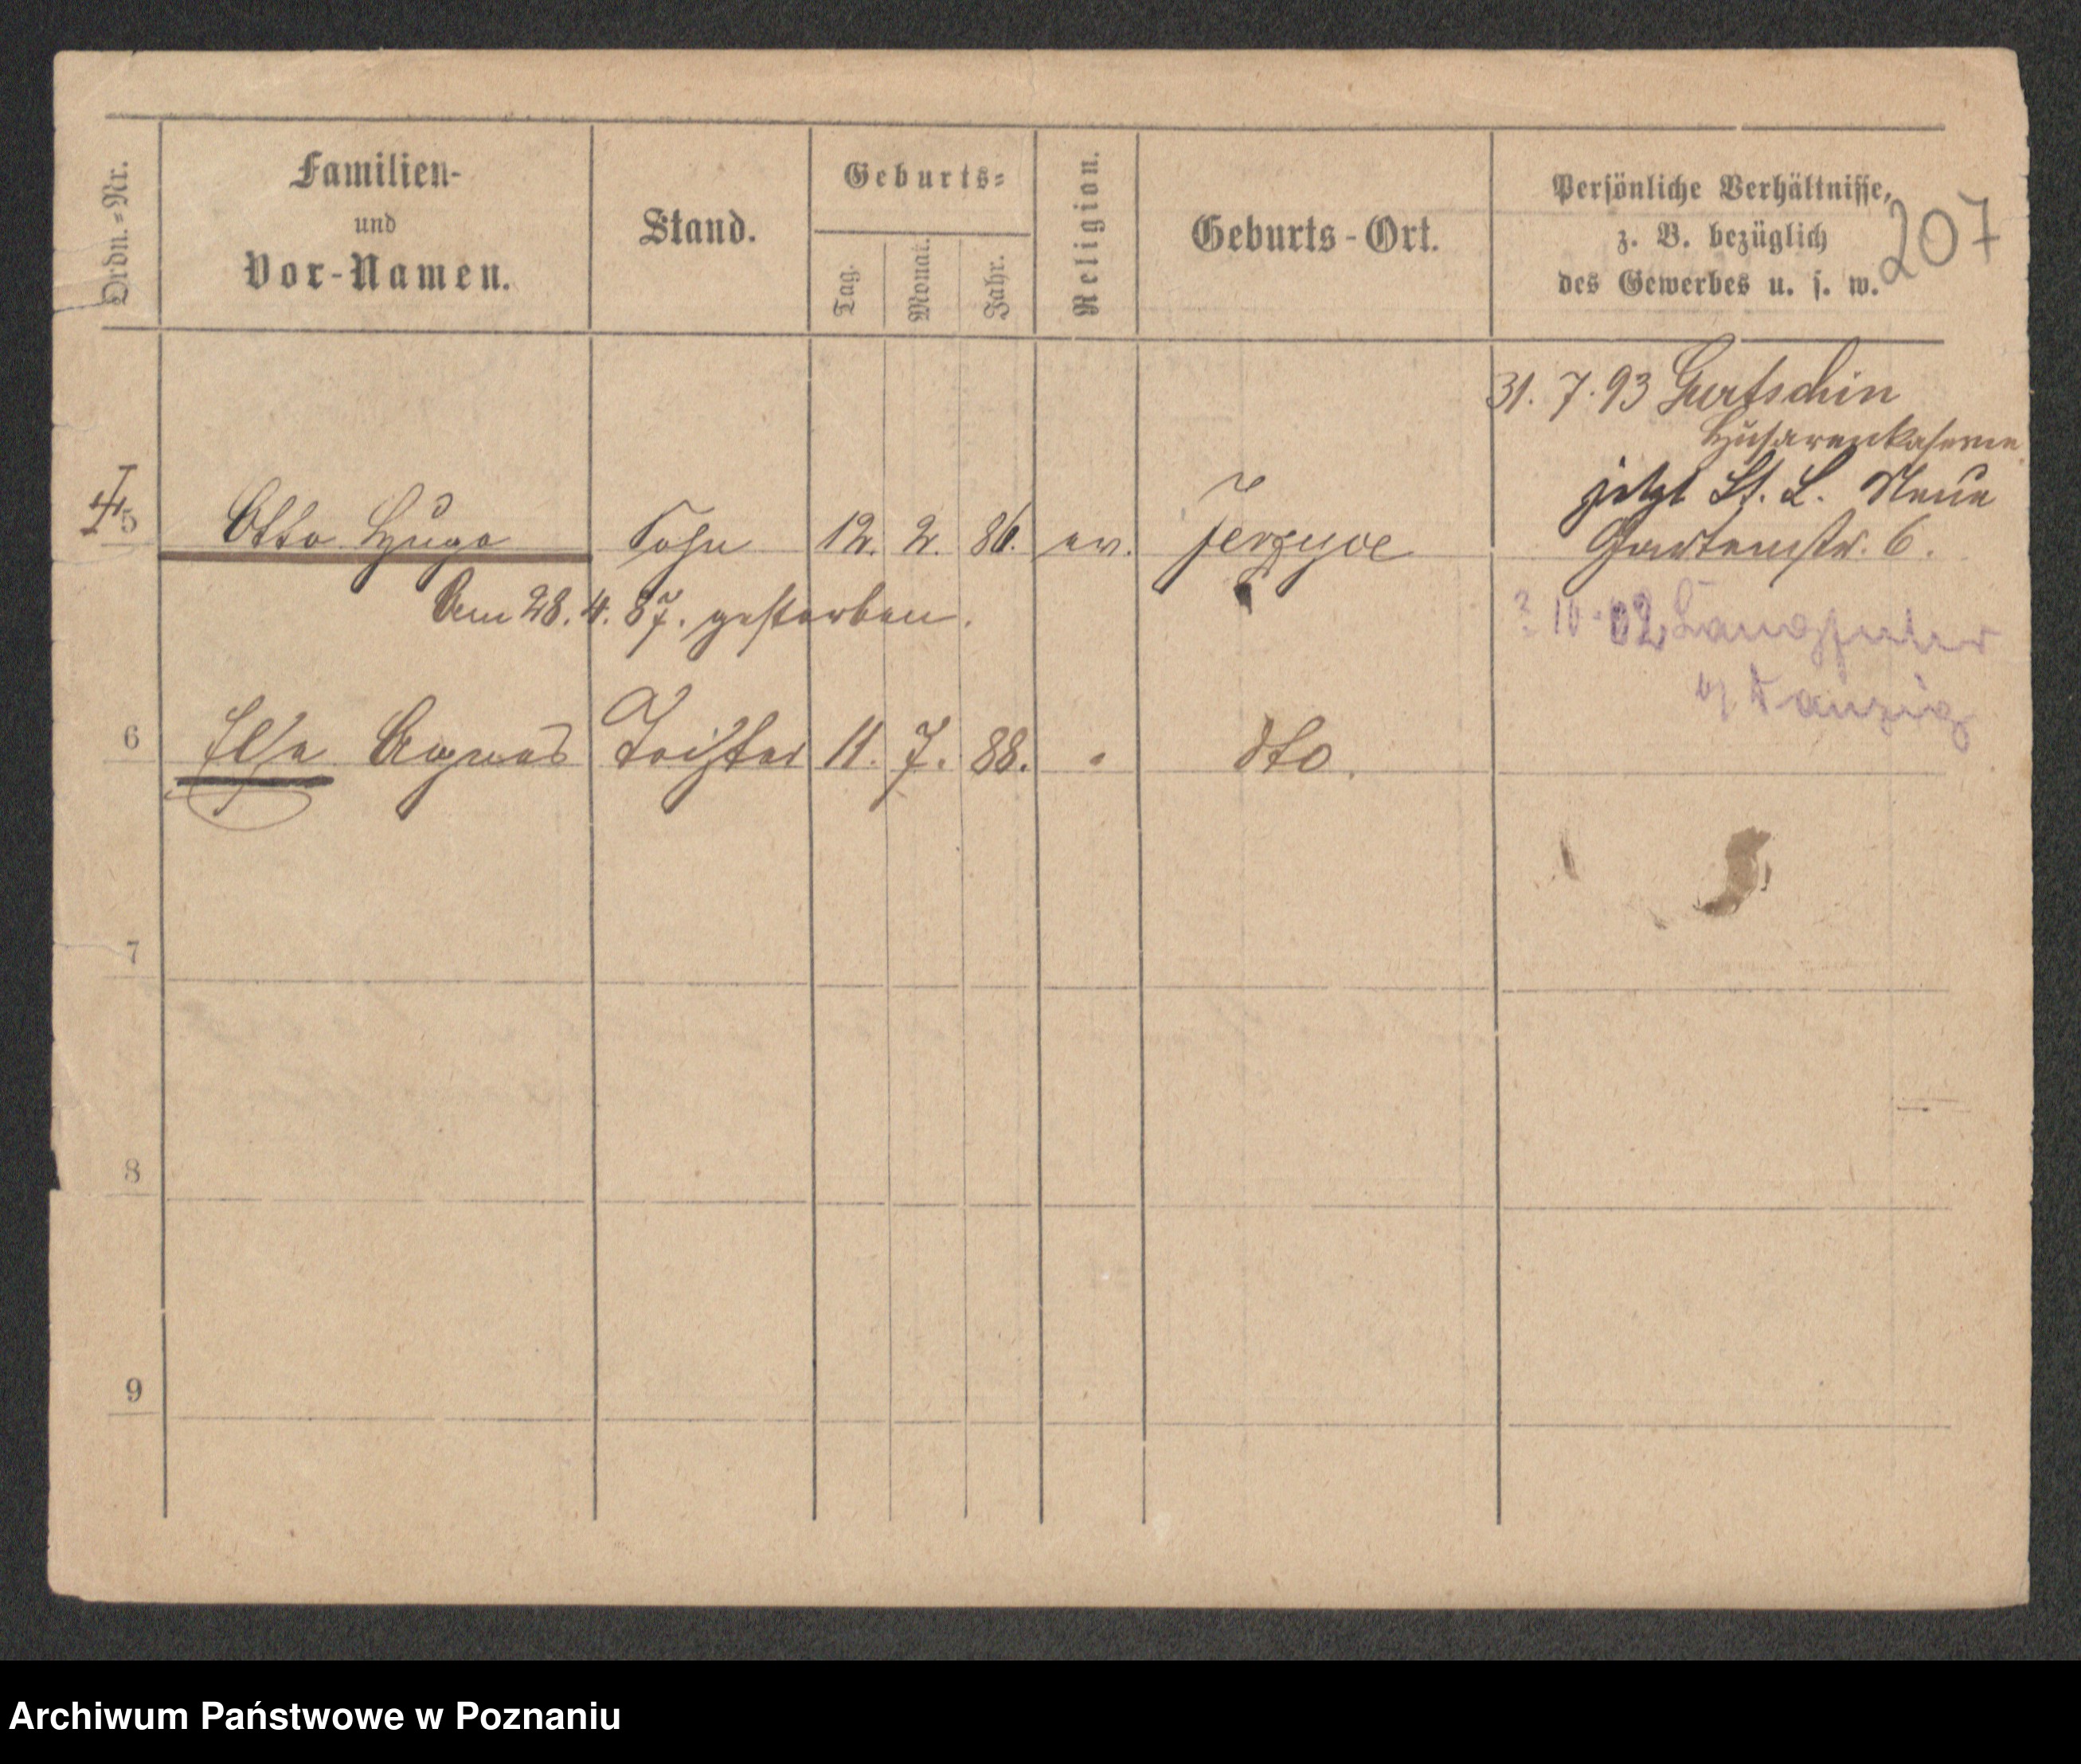 Ordn.=Nr.
Familien-
und
Vor-Namen.
Stand.
Geburts=
Tag.
Monat.
Jahr.
Religion.
Geburts-Ort.
Persönliche Verhältnisse,
z. B. bezüglich
des Gewerbes u. s. w.
207
31. 7. 93
Husarenkaserne
jetzt St. L. Neue
Gartenstr. 6.
5 Otto Hugo Sohn 12. 2. 86. ev. Jerzyce
Am 28. 4. 87. gestorben.
10. 02 Langfuhr
b/ Danzig
6 Else Agnes Tochter 11. 7. 88. " dto.
7
8
9
Archiwum Państwowe w Poznaniu